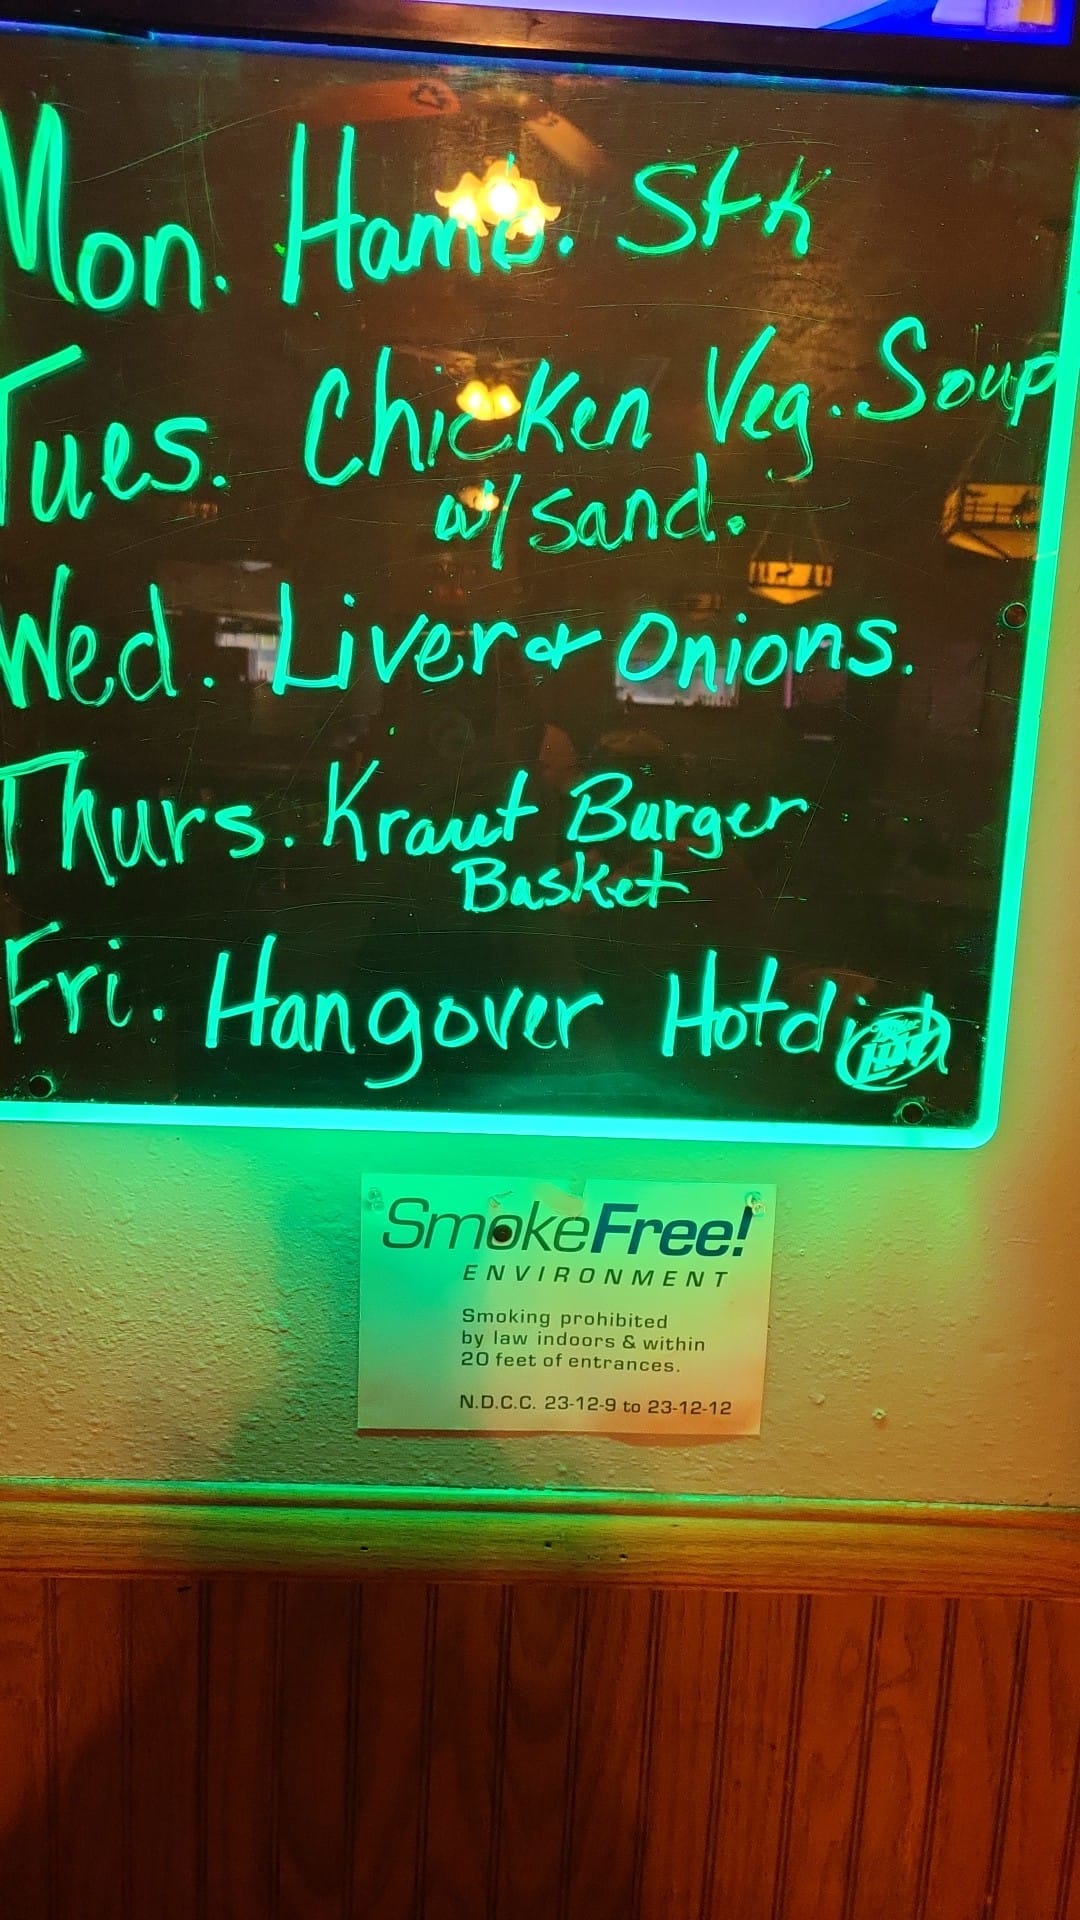 Mon. Hamb. Stk
Tues. Chicken Veg. Soup
w/ sand.
Wed. Liver & Onions.
Thurs. Kraut Burger
Basket
Fri. Hangover Hotdish
SmokeFree!
ENVIRONMENT
Smoking prohibited
by law indoors & within
20 feet of entrances.
N.D.C.C. 23-12-9 to 23-12-12